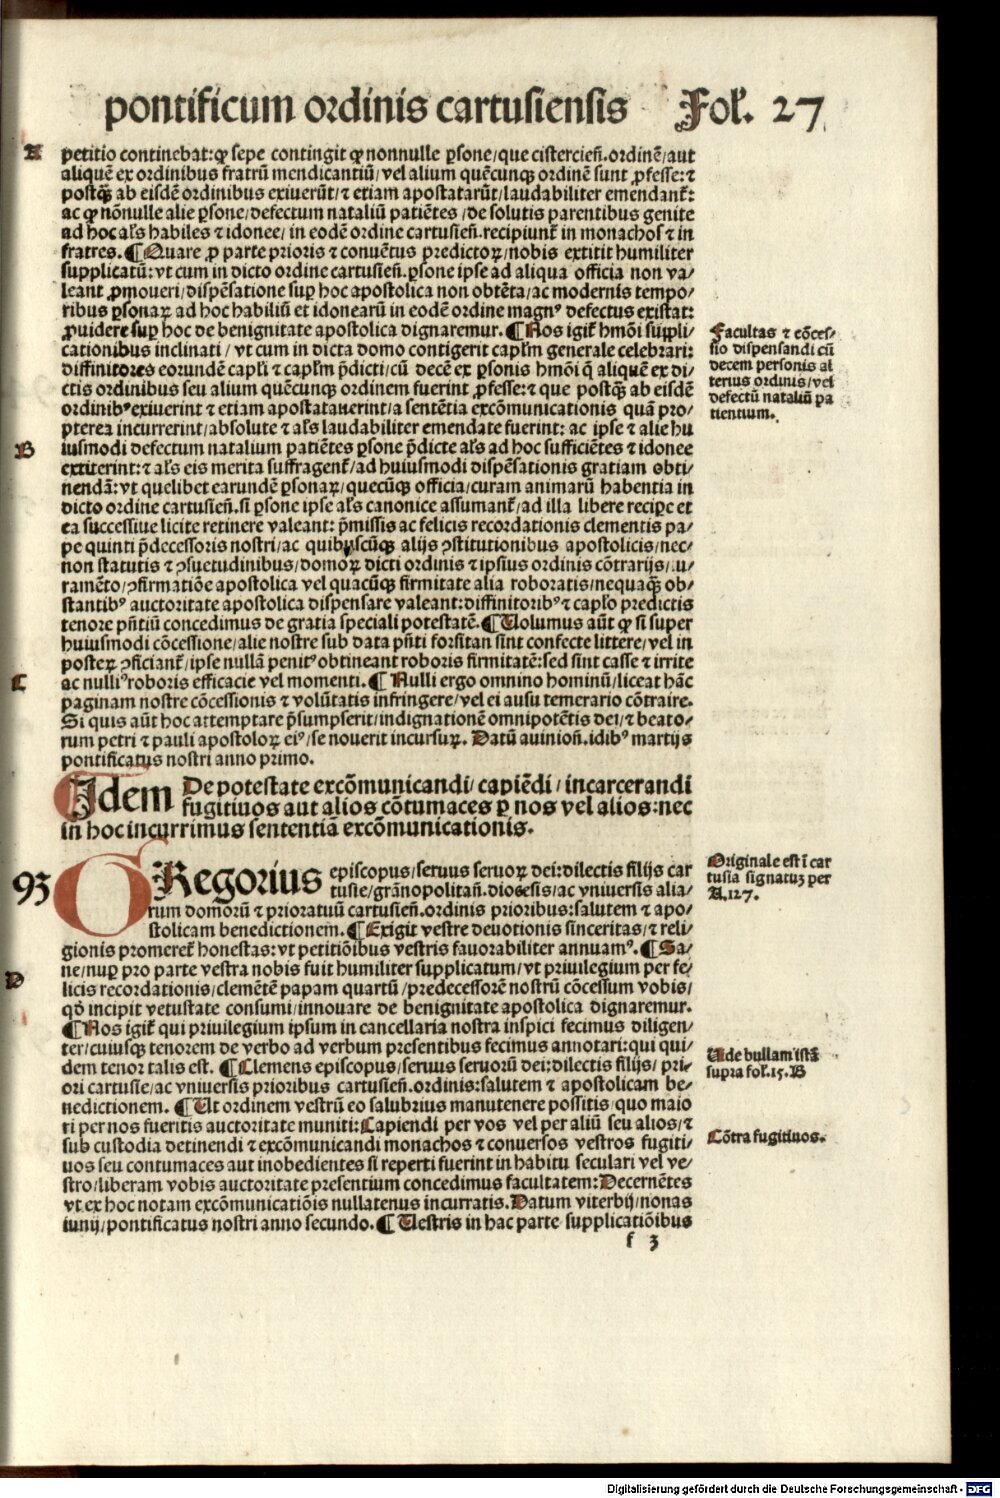 pontificum ordinis cartusiensis Fol. 27
A
petitio continebat: ꝙ sepe contingit ꝙ nonnulle ꝑsone/que cistercien̄.ordinē/aut
aliquē ex ordinibus fratrū mendicantiū/vel alium quēcunqꝫ ordinē sunt ꝓfesse:⁊
postqꝫ̄ ab eisdē ordinibus exiuerūt/⁊ etiam apostatarūt/laudabiliter emendant̄:
ac ꝙ nōnulle alie ꝑsone/defectum nataliū patiētes/de solutis parentibus genite
ad hoc al̄s habiles ⁊ idonee/in eodē ordine cartusien̄.recipiunt̄ in monachos ⁊ in
fratres. ¶Quare ꝓ parte prioris ⁊ conuētus predictoꝝ/nobis extitit humiliter
supplicatū: vt cum in dicto ordine cartusien̄.ꝑsone ipse ad aliqua officia non va/
leant ꝓmoueri/dispēsatione suꝑ hoc apostolica non obtēta/ac modernis tempo/
ribus ꝑsonaꝝ ad hoc habiliū et idonearū in eodē ordine magnꝰ defectus existat:
ꝓuidere suꝑ hoc de benignitate apostolica dignaremur. ¶Nos igit̄ hmōi suppli/
cationibus inclinati/vt cum in dicta domo contigerit capl̄m generale celebrari:
diffinitores eorundē capl̄i ⁊ capl̄m p̄dicti/cū decē ex ꝑsonis hmōi q̄ aliquē ex di/
ctis ordinibus seu alium quēcunqꝫ ordinem fuerint ꝓfesse:⁊ que postqꝫ̄ ab eisdē
ordinibꝰ exiuerint ⁊ etiam apostatauerint/a sentētia excōmunicationis quā pro/
pterea incurrerint/absolute ⁊ al̄s laudabiliter emendate fuerint: ac ipse ⁊ alie hu
B
iusmodi defectum natalium patiētes ꝑsone p̄dicte al̄s ad hoc sufficiētes ⁊ idonee
extiterint:⁊ al̄s eis merita suffragent̄/ad huiusmodi dispēsationis gratiam obti/
nendā: vt quelibet earundē ꝑsonaꝝ/quecūqꝫ officia/curam animarū habentia in
dicto ordine cartusien̄.si ꝑsone ipse al̄s canonice assumant̄/ad illa libere recipe et
ea successiue licite retinere valeant: p̄missis ac felicis recordationis clementis pa/
pe quinti p̄decessoris nostri/ac quibuscūqꝫ alijs ꝯstitutionibus apostolicis/nec/
non statutis ⁊ ꝯsuetudinibus/domoꝝ dicti ordinis ⁊ ipsius ordinis cōtrarijs/iu/
ramēto/ꝯfirmatiōe apostolica vel quacūqꝫ firmitate alia roboratis/nequaqꝫ̄ ob/
stantibꝰ auctoritate apostolica dispensare valeant: diffinitoribꝰ ⁊ capl̄o predictis
tenore pn̄tiū concedimus de gratia speciali potestatē. ¶Uolumus aūt ꝙ si super
huiusmodi cōcessione/alie nostre sub data pn̄ti forsitan sint confecte littere/vel in
posteꝝ ꝯficiant̄/ipse nullā penitꝰ obtineant roboris firmitatē: sed sint casse ⁊ irrite
C
ac nulliꝰ roboris efficacie vel momenti. ¶Nulli ergo omnino hominū/liceat hāc
paginam nostre cōcessionis ⁊ volūtatis infringere/vel ei ausu temerario cōtraire.
Si quis aūt hoc attemptare p̄sumpserit/indignationē omnipotētis dei/⁊ beato/
rum petri ⁊ pauli apostoloꝝ eiꝰ/se nouerit incursuꝝ. Datū auinion̄.idibꝰ martijs
pontificatus nostri anno primo.
Idem De potestate excōmunicandi/capiēdi/incarcerandi
fugitiuos aut alios cōtumaces ꝑ nos vel alios: nec
in hoc incurrimus sententiā excōmunicationis.
93 GRegorius episcopus/seruus seruoꝝ dei: dilectis filijs car
tusie/gr̄anopolitan̄.diocesis/ac vniuersis alia/
rum domorū ⁊ prioratuū cartusien̄.ordinis prioribus: salutem ⁊ apo/
stolicam benedictionem. ¶Exigit vestre deuotionis sinceritas/⁊ reli/
gionis promeret̄ honestas: vt petitiōibus vestris fauorabiliter annuamꝰ. ¶Sa/
D
ne/nuꝑ pro parte vestra nobis fuit humiliter supplicatum/vt priuilegium per fe/
licis recordationis/clementē papam quartū/predecessorē nostrū cōcessum vobis/
qd̄ incipit vetustate consumi/innouare de benignitate apostolica dignaremur.
¶Nos igit̄ qui priuilegium ipsum in cancellaria nostra inspici fecimus diligen/
ter/cuiusqꝫ tenorem de verbo ad verbum presentibus fecimus annotari: qui qui/
dem tenor talis est. ¶Clemens episcopus/seruus seruorū dei: dilectis filijs/pri/
ori cartusie/ac vniuersis prioribus cartusien̄.ordinis: salutem ⁊ apostolicam be/
nedictionem. ¶Ut ordinem vestrū eo salubrius manutenere possitis/quo maio
ri per nos fueritis auctoritate muniti: Capiendi per vos vel per aliū seu alios/⁊
sub custodia detinendi ⁊ excōmunicandi monachos ⁊ conuersos vestros fugiti/
uos seu contumaces aut inobedientes si reperti fuerint in habitu seculari vel ve/
stro/liberam vobis auctoritate presentium concedimus facultatem: Decernētes
vt ex hoc notam excōmunicatiōis nullatenus incurratis. Datum viterbij/nonas
iunij/pontificatus nostri anno secundo. ¶Uestris in hac parte supplicatiōibus
f 3
Facultas ⁊ cōces/
sio dispensandi cū
decem personis al
terius ordinis/vel
defectū nataliū pa
tientium.
Originale est ī car
tusia signatuꝫ per
A.127.
Uide bullam istā
supra fol.15.B
Cōtra fugitiuos.
Digitalisierung gefördert durch die Deutsche Forschungsgemeinschaft - DFG